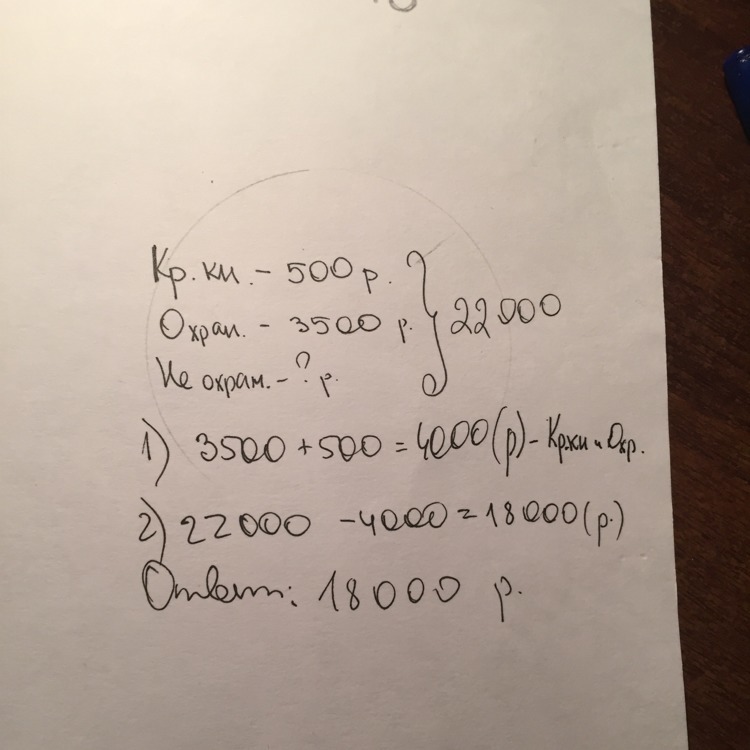 Кр. кн. - 500 р.
Охран. - 3500 р.
Не охран. - ? р.
22000
1) 3500 + 500 = 4000 (р) - Кр.кн и Охр.
2) 22000 - 4000 = 18000 (р.)
Ответ: 18000 р.